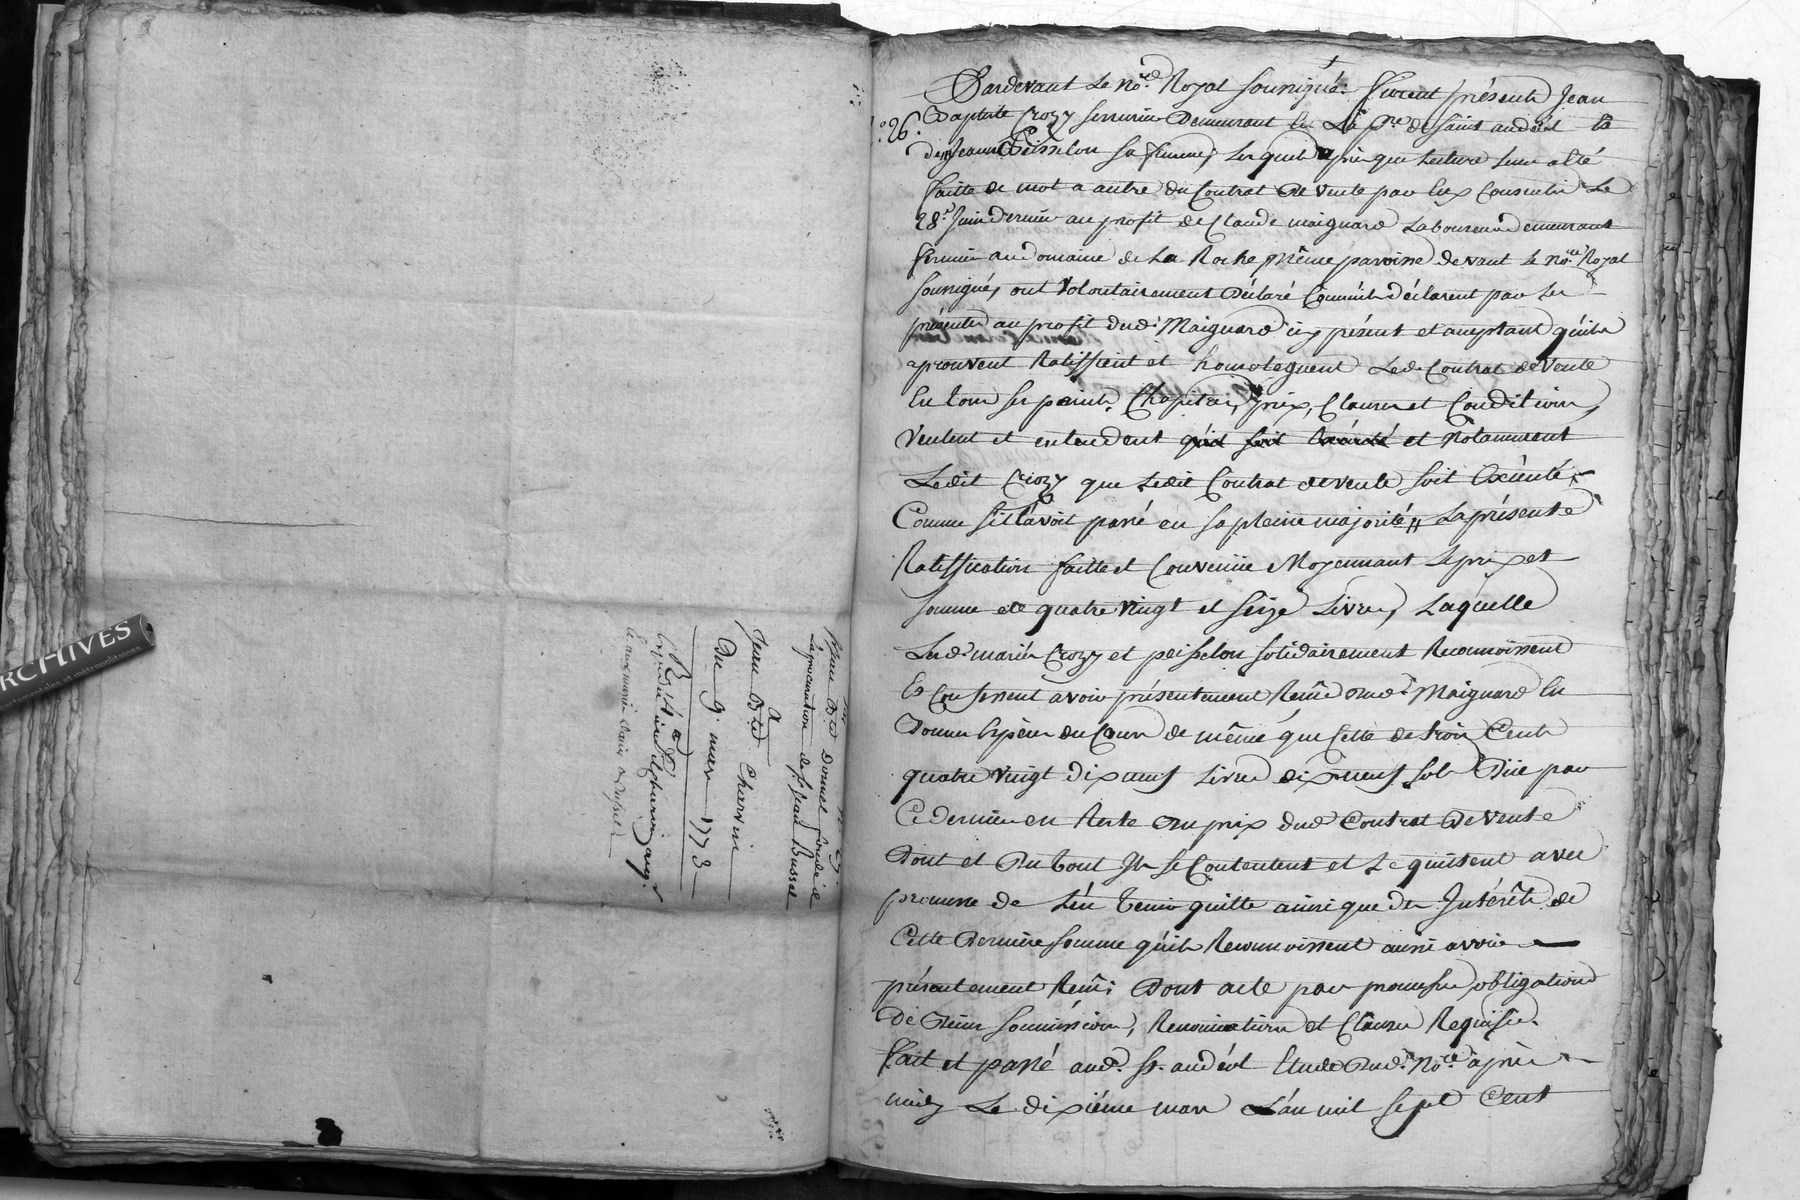 Pardevant Le no.re Royal soussigné. furent présents Jean
26. Baptiste Crozy serrurier Demeurant en La p.sse de saint andéol la
Jeanne Peisselon sa femme, Lesquels après que Lecture leur a été
faitte de mot a autre du Contrat de vente par Eux Consentis Le
28.e Juin dernier au profit de Claude maignard Laboureur demeurant
fermier au domaine de La Roche même paroisse devant le no.re Royal
soussigné, ont Volontairement Déclaré Comme ils déclarent par Les
présentes au profit dud. Maignard icy présent et acceptant qu'ils
aprouvent Ratiffient et homologuent Led. Contrat de vente
En tous ses points, Chapitres, prix, Clauses et Conditions,
Veulent et entendent qu'il soit Exécuté et Notamment
Ledit Crozy que Ledit Contrat de vente soit Exécuté,
Comme s'il l'avoit passé en sa pleine majorité, La présente
Ratiffication faitte et Convenüe Moyennant Le prix et
somme de quatre vingt et seize Livres, Laquelle
Les d. mariés Crozy et peisselon solidairement Reconnoissent
Et Confessent avoir présentement Reçüe dud. Maignard En
Bonnes Espèces du Cours de même que Celle de trois Cents
quatre vingt dix neuf Livres dix neuf sols Düe par
Ce dernier en Reste du prix dud. Contrat de vente
Dont et Du tout Ils se Contentent et Le quittent avec
promesse de L'en tenir quitte ainsi que des Intérêts de
Cette Dernière somme qu'ils Reconnoissent aussi avoir
présentement Reçüs Dont acte par promesses, obligations
De Biens soumissions, Renonciations et Clauses Requises.
Fait et passé aud. St. andéol Etude Dud. No.re après
midy Le dixième mars L'an mil sept Cent
Jean B.te Dormel fondé de
La procuration de S.r Jean Bussat
a
Jean B.te Chervin
Du 9. mars 1773
ARCHIVES